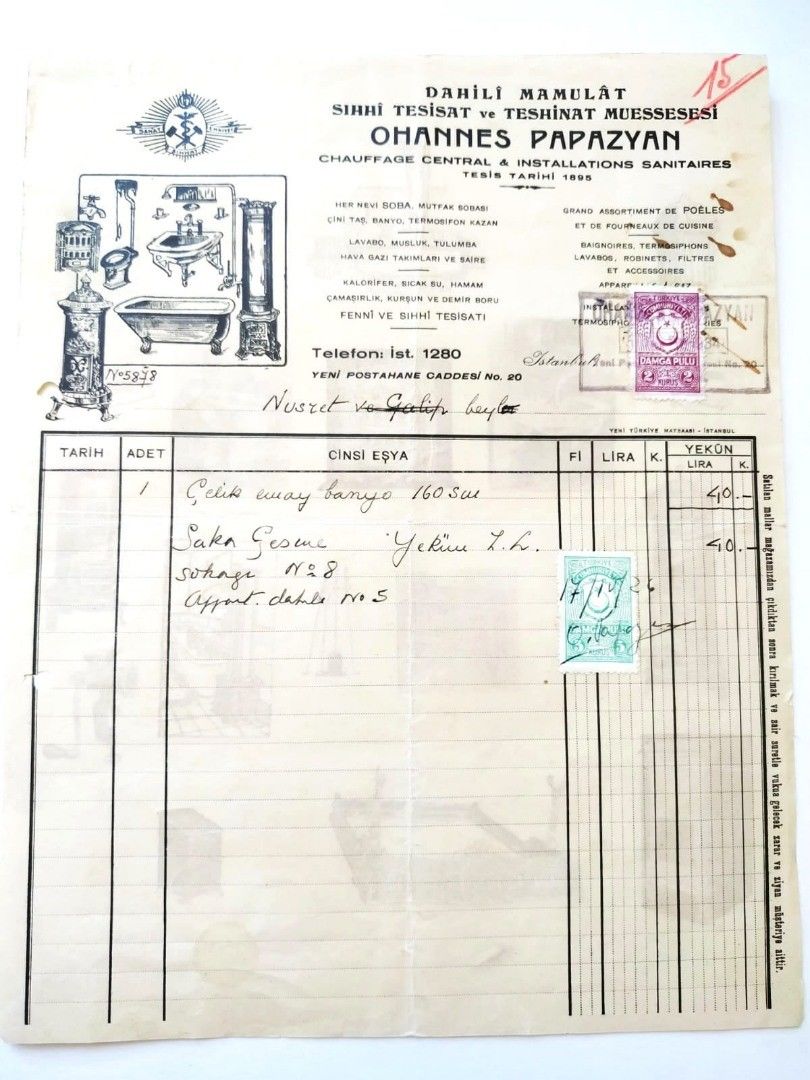 15
SANAT
SIHHAT
DAHİLÎ MAMULÂT
SIHHÎ TESİSAT ve TESHİNAT MUESSESESİ
OHANNES PAPAZYAN
CHAUFFAGE CENTRAL & INSTALLATIONS SANITAIRES
TESİS TARİHİ 1895
HER NEVİ SOBA, MUTFAK SOBASI
ÇİNİ TAŞ, BANYO, TERMOSİFON KAZAN
LAVABO, MUSLUK, TULUMBA
HAVA GAZI TAKIMLARI VE SAİRE
KALORİFER, SICAK SU, HAMAM
ÇAMAŞIRLIK, KURŞUN VE DEMİR BORU
FENNÎ VE SIHHÎ TESİSATI
GRAND ASSORTIMENT DE POÊLES
ET DE FOURNEAUX DE CUISINE
BAIGNOIRES, TERMOSIPHONS
LAVABOS, ROBINETS, FILTRES
ET ACCESSOIRES
TÜRKİYE
CUMHURİYETİ
DAMGA PULU
2 2
KURUŞ
No. 20
Telefon: İst. 1280
YENİ POSTAHANE CADDESİ No. 20
İstanbul
No 5878
Nusret ve Galip beyle
YENİ TÜRKİYE MATBAASI - İSTANBUL
TARİH ADET CİNSİ EŞYA Fİ LİRA K. YEKÛN
LİRA K.
1 Çelik emay banyo 160 40.-
Saka Çesme Yekün T. L. 40.-
sokagı No 8
Appart. dahile No 5
TÜRKİYE
CUMHURİYETİ
17/ / 26
5 5
KURUŞ
Satılan mallar mağazamızdan çıktıktan sonra kırılmak ve sair suretle vukua gelecek zarar ve ziyan müşteriye aittir.